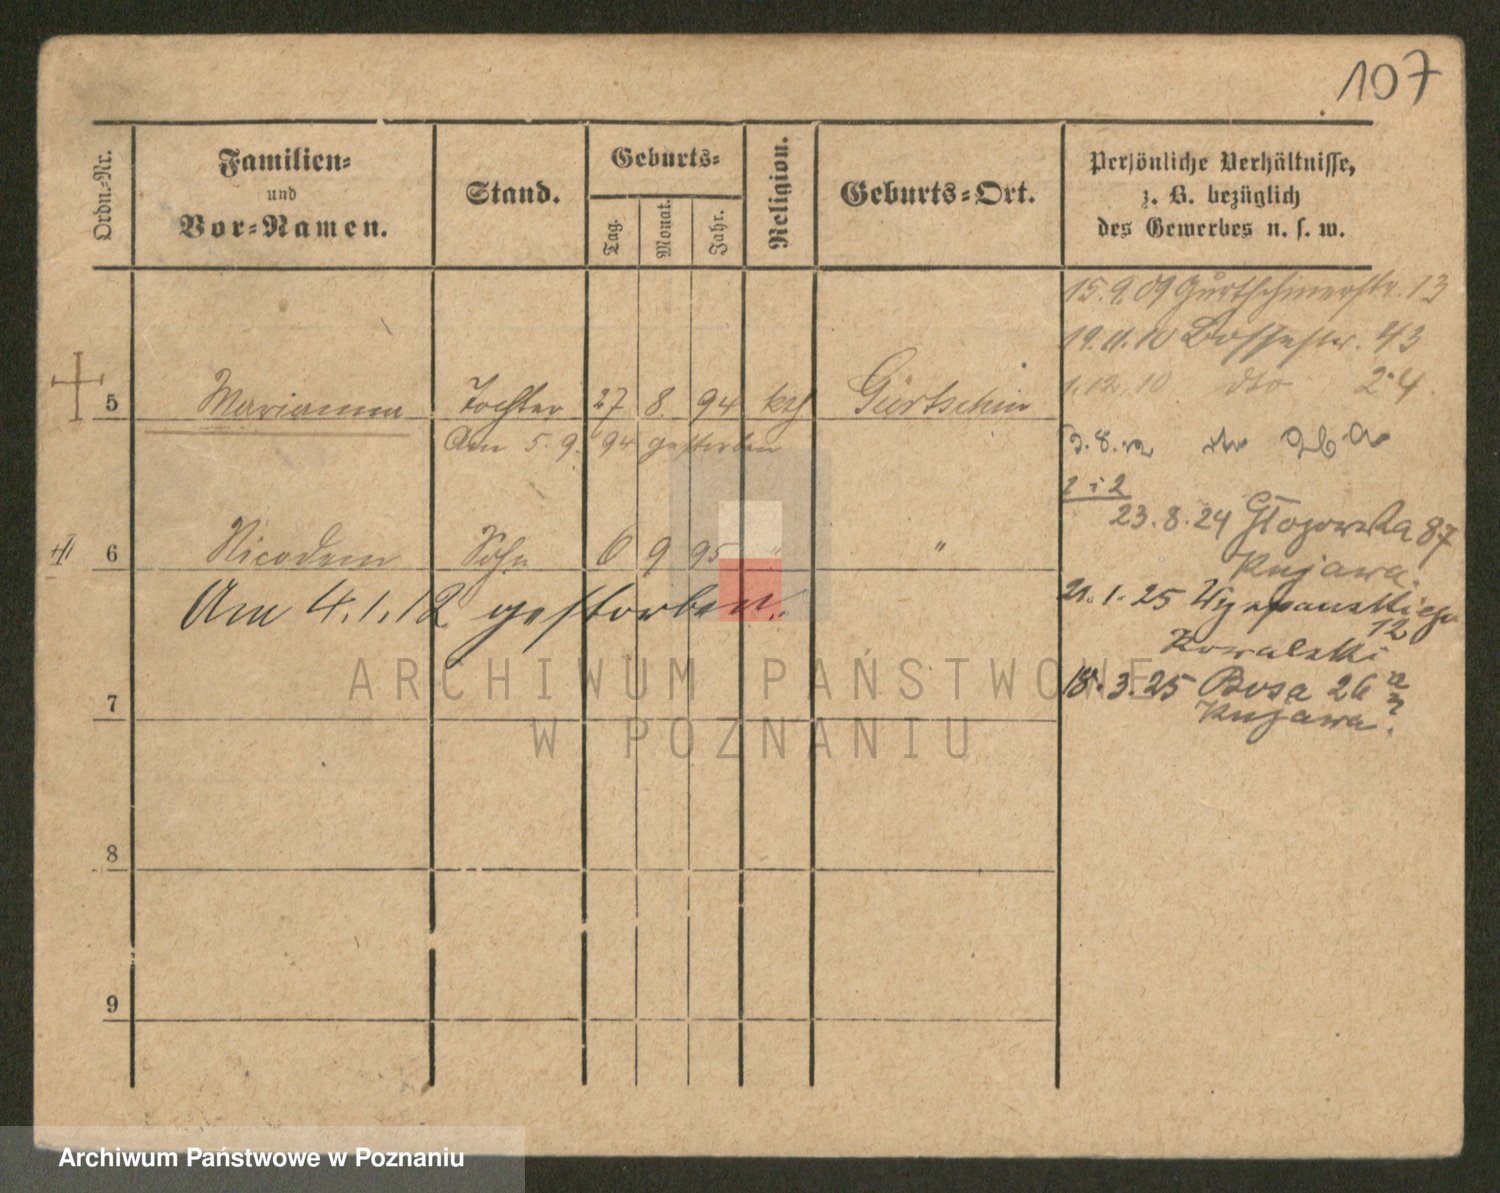 107
Ordn.-Nr.
Familien-
und
Vor-Namen.
Stand.
Geburts-
Tag.
Monat.
Jahr.
Religion.
Geburts-Ort.
Persönliche Verhältnisse,
z. B. bezüglich
des Gewerbes u. s. w.
15.9.09 Gurtschinerstr. 13
19.11.10 43
1.12.10 dto 24.
5 Marianna Tochter 27 8. 94 kth Gurtschin
Am 5. 9. 94 gestorben
3.8.12
23.8.24 Głogowska 87
Kujawa.
6 Nicodem Sohn 6 9 95 " "
Am 4.1.12 gestorben.
21.1.25 Wyspiańskiego
12
Kowalski
18.3.25 Bosa 26
Kujawa.
7
8
9
ARCHIWUM PAŃSTWOWE
W POZNANIU
Archiwum Państwowe w Poznaniu